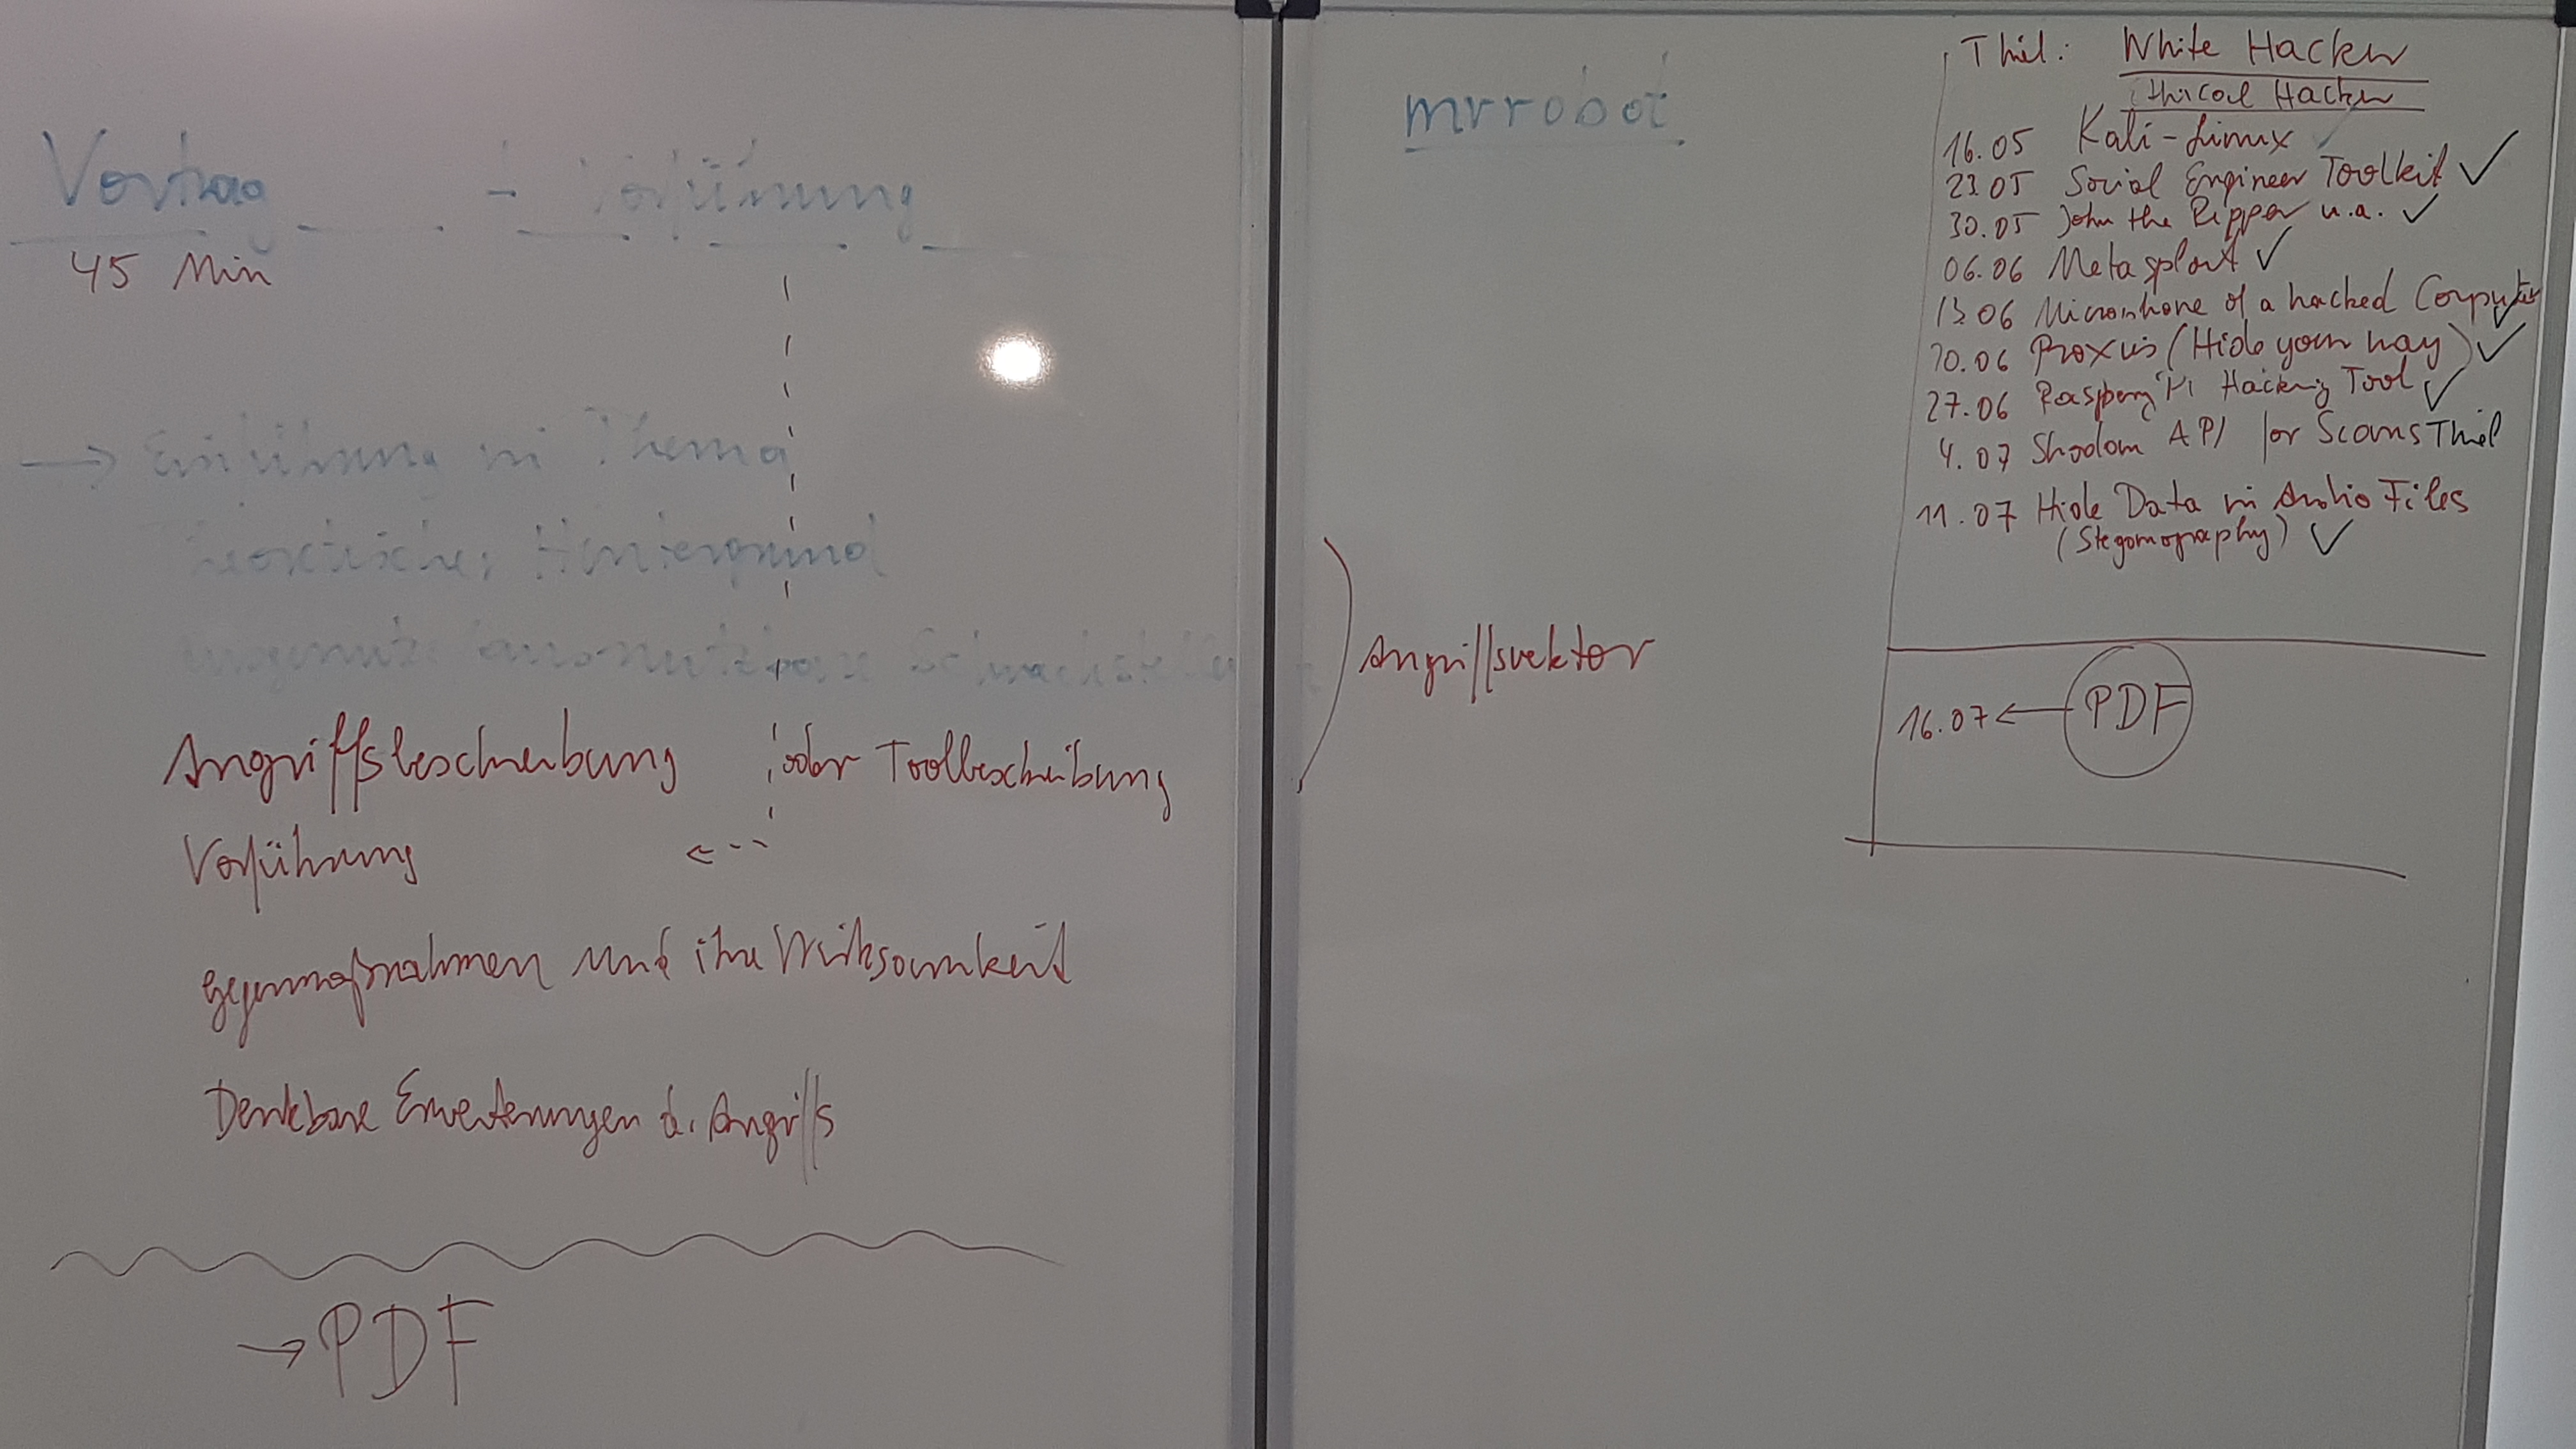 Vortrag - Vorführung
45 Min
→ Einführung in Thema
Theoretischer Hintergrund
Angriffsbeschreibung oder Toolbeschreibung
Vorführung
gegenmaßnahmen und ihre Wirksamkeit
Denkbare Erweiterungen d. Angriffs
→ PDF
mrrobot
Angriffsvektor
Thiel: White Hacker
Ethical Hacker
16.05 Kali-Linux ✓
23.05 Social Engineer Toolkit ✓
30.05 John the Ripper u.a. ✓
06.06 Metasploit ✓
13.06 Microphone of a hacked Computer ✓
20.06 Proxies (Hide your way) ✓
27.06 Raspberry Pi Hacking Tool ✓
4.07 Shodan API for Scans Thiel
11.07 Hide Data in Audio Files
(Steganography) ✓
16.07 ← PDF